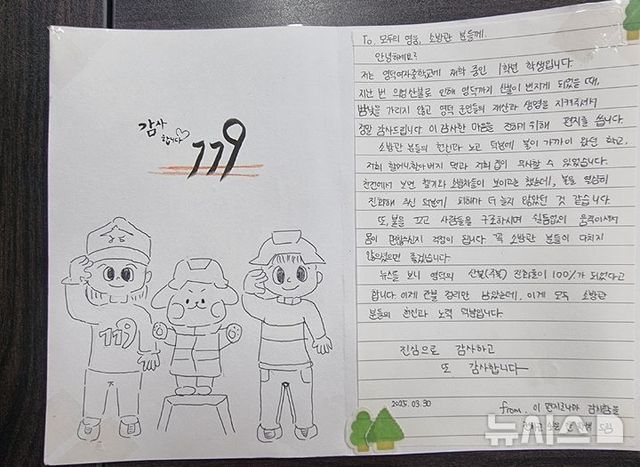 감사
합니다♡
119
119
To. 모두의 영웅, 소방관 분들께.
안녕하세요?
저는 영덕여자중학교에 재학 중인 1학년 학생입니다.
지난 번 의성산불로 인해 영덕까지 산불이 번지게 되었을 때,
밤낮을 가리지 않고 영덕 군민들의 재산과 생명을 지켜주셔서
정말 감사드립니다. 이 감사한 마음을 전하기 위해 편지를 씁니다.
소방관 분들의 헌신과 노고 덕분에 불이 가까이 왔던 학교,
저희 할머니, 할아버지 댁과 저희 집이 무사할 수 있었습니다.
진화해 주신 덕분에 피해가 더 늘지 않았던 것 같습니다.
또, 불을 끄고 사람들을 구조하시며 쉴틈없이 움직이셔서
몸이 괜찮으신지 걱정이 됩니다. 꼭 소방관 분들이 다치지
않으셨으면 좋겠습니다.
뉴스를 보니 영덕의 산불(주불) 진화율이 100%가 되었다고
합니다. 이제 잔불 정리만 남았는데, 이게 모두 소방관
분들의 헌신과 노력 덕분입니다.
진심으로 감사하고
또 감사합니다—
2025.03.30
from. 이 편지로나마 감사함을
뉴시스